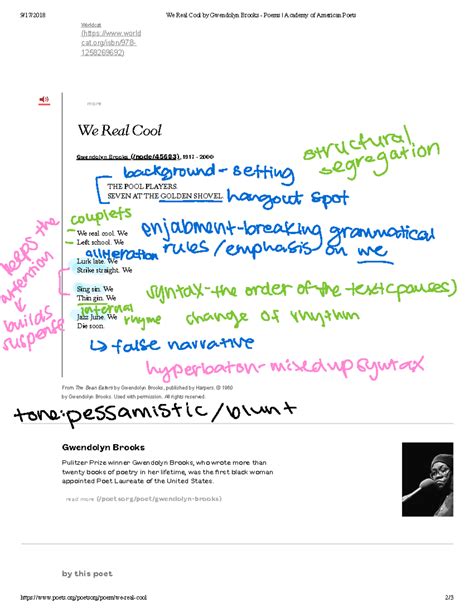 9/17/2018
We Real Cool by Gwendolyn Brooks - Poems | Academy of American Poets
Worldcat
(https://www.world
cat.org/isbn/978-
1258269692)
more
We Real Cool
structural
segregation
Gwendolyn Brooks (/node/45683), 1917 - 2000
background - setting
THE POOL PLAYERS.
SEVEN AT THE GOLDEN SHOVEL.
hangout spot
couplets
enjabment-breaking grammatical
rules/emphasis on we
We real cool. We
Left school. We
alliteration
Lurk late. We
Strike straight. We
keeps the
attention
↓
builds
suspense
Sing sin. We
Thin gin. We
syntax-the order of the text(pauses)
internal
rhyme
change of rhythm
Jazz June. We
Die soon.
↳ false narrative
hyperbaton-mixed up syntax
From The Bean Eaters by Gwendolyn Brooks, published by Harpers. © 1960
by Gwendolyn Brooks. Used with permission. All rights reserved.
tone:pessamistic/blunt
Gwendolyn Brooks
Pulitzer Prize winner Gwendolyn Brooks, who wrote more than
twenty books of poetry in her lifetime, was the first black woman
appointed Poet Laureate of the United States.
read more (/poetsorg/poet/gwendolyn-brooks)
by this poet
https://www.poets.org/poetsorg/poem/we-real-cool
2/3